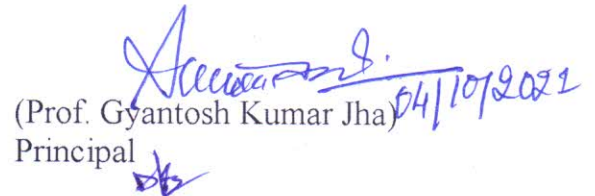 04/10/2021
(Prof. Gyantosh Kumar Jha)
Principal